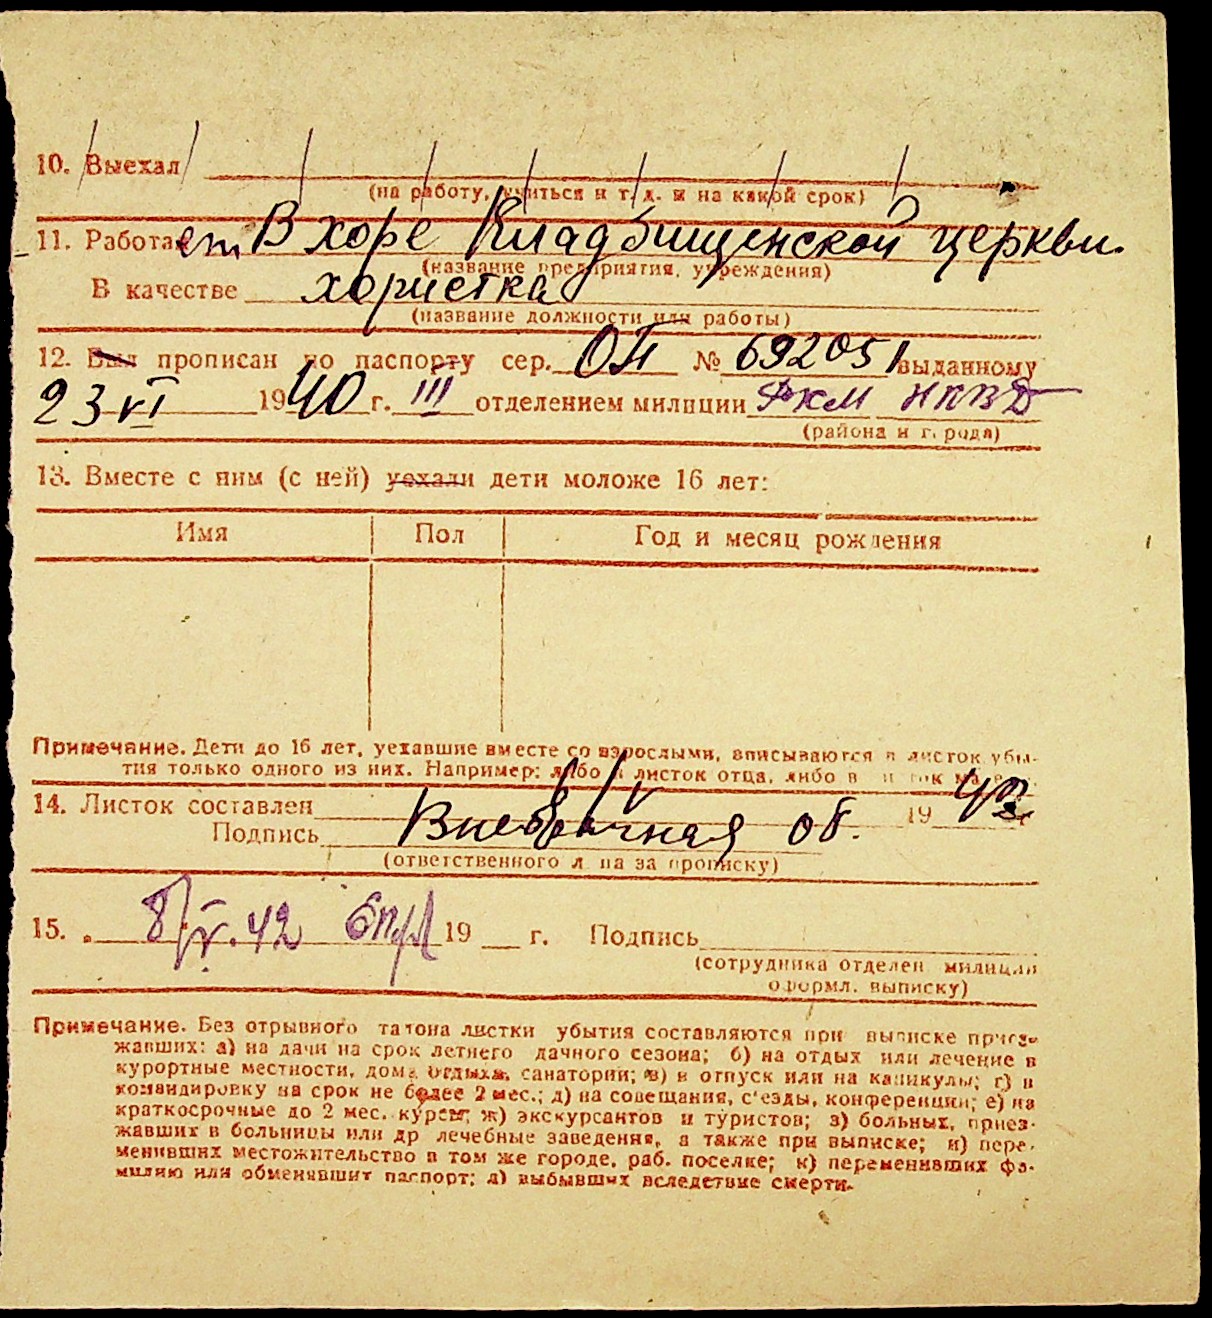 10. Выехал
(на работу, учиться и т. д. и на какой срок)
11. Работает В хоре Кладбищенской церкви.
(название предприятия, учреждения)
В качестве хористка
(название должности или работы)
12. Был прописан по паспорту сер. ОП № 692051 выданному
23 VI 1940 г. III отделением милиции РКМ НКВД
(района и города)
13. Вместе с ним (с ней) уехали дети моложе 16 лет:
Имя Пол Год и месяц рождения
Примечание. Дети до 16 лет, уехавшие вместе со взрослыми, вписываются в листок убы-
тия только одного из них. Например: либо в листок отца, либо в листок матери.
14. Листок составлен 19 42 г.
Подпись
(ответственного лица за прописку)
15. „ 8/V. 42 19 г. Подпись
(сотрудника отделен милиции
оформл. выписку)
Примечание. Без отрывного талона листки убытия составляются при выписке приез-
жавших: а) на дачи на срок летнего дачного сезона; б) на отдых или лечение в
курортные местности, дома отдыха, санатории; в) в отпуск или на каникулы; г) в
командировку на срок не более 2 мес.; д) на совещания, с'езды, конференции; е) на
краткосрочные до 2 мес. курсы; ж) экскурсантов и туристов; з) больных, приез-
жавших в больницы или др лечебные заведения, а также при выписке; и) пере-
менивших местожительство в том же городе, раб. поселке; к) переменивших фа-
милию или обменявшит паспорт; л) выбывших вследствие смерти.